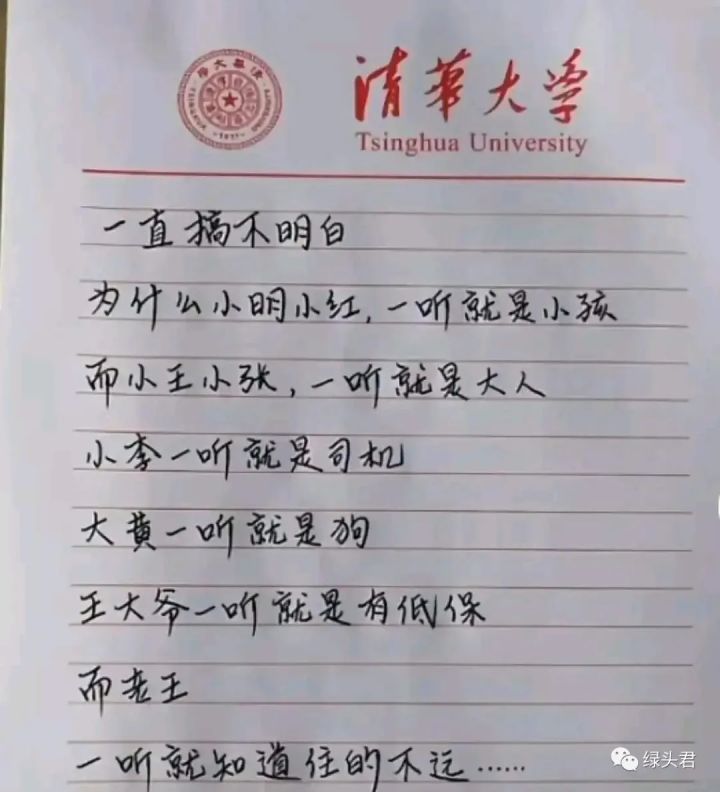 清华大学
Tsinghua University
一直搞不明白
为什么小明小红,一听就是小孩
而小王小张,一听就是大人
小李一听就是司机
大黄一听就是狗
王大爷一听就是有低保
而老王
一听就知道住的不远……
绿头君